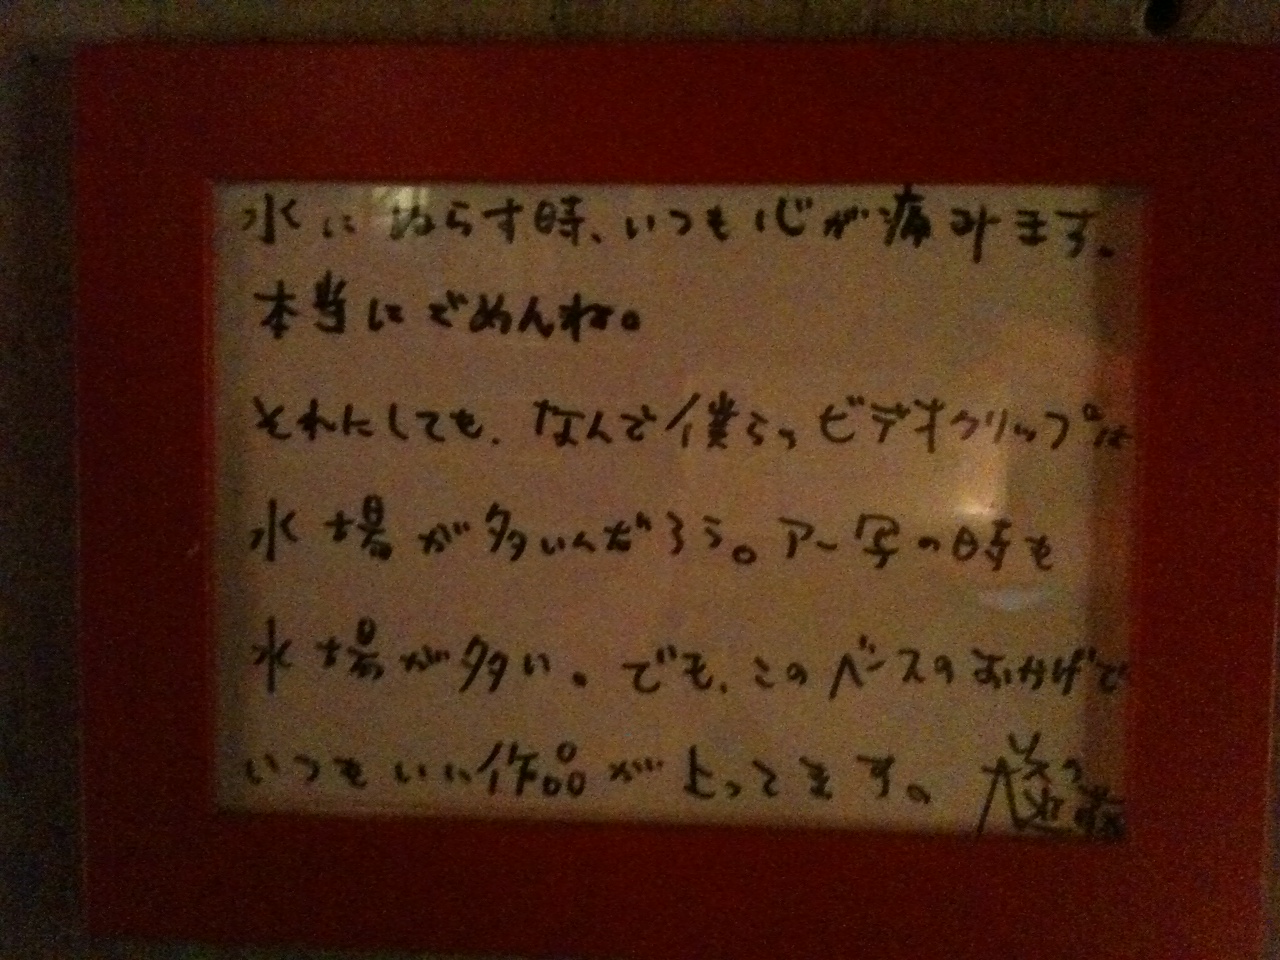 水にぬらす時、いつも心が痛みます。
本当にごめんね。
それにしても、なんで僕らのビデオクリップは
水場が多いんだろう。アー写の時も
水場が多い。でも、このベースのおかげで
いつもいい作品が上ってます。